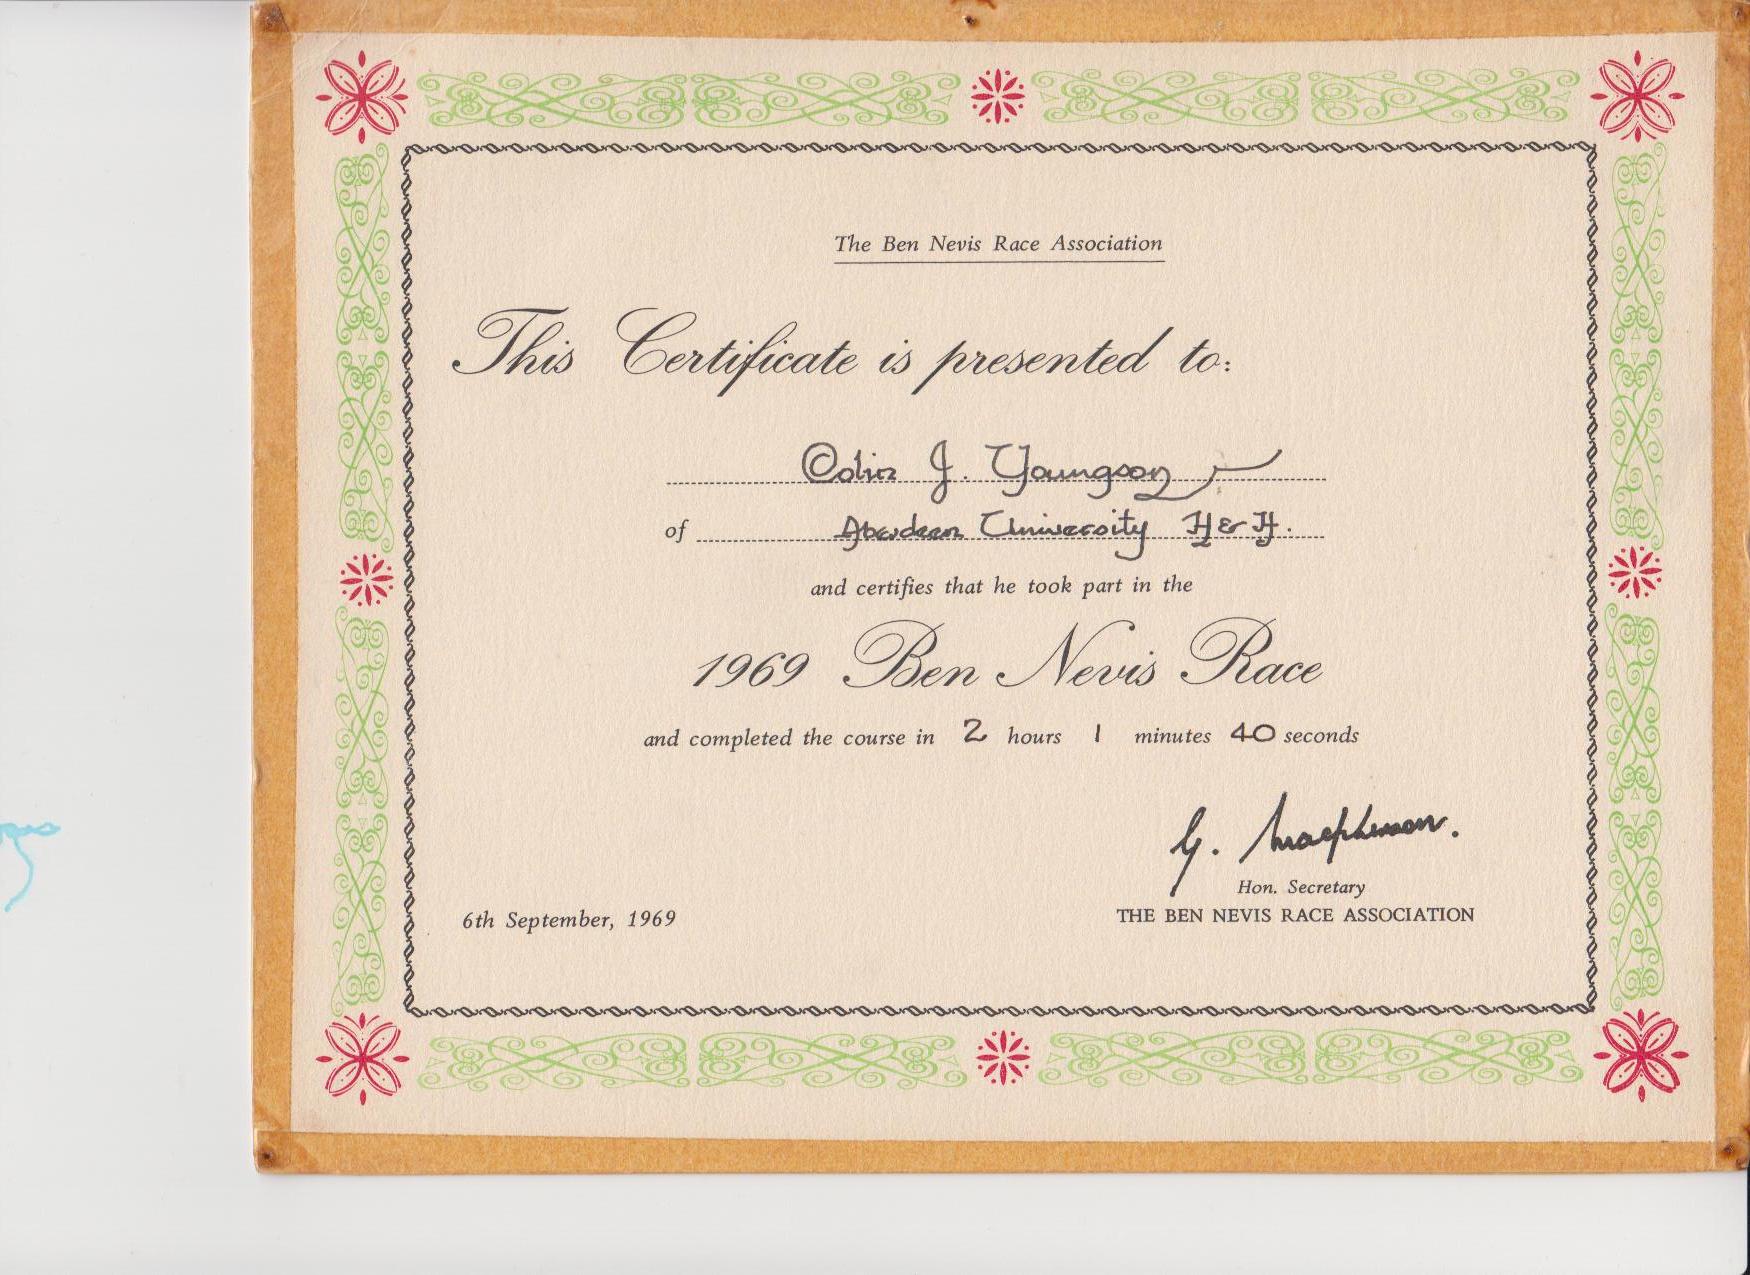 The Ben Nevis Race Association
This Certificate is presented to:
Colin J. Youngson
of Aberdeen University H & H.
and certifies that he took part in the
1969 Ben Nevis Race
and completed the course in 2 hours 1 minutes 40 seconds
G. Macpherson.
Hon. Secretary
6th September, 1969 THE BEN NEVIS RACE ASSOCIATION